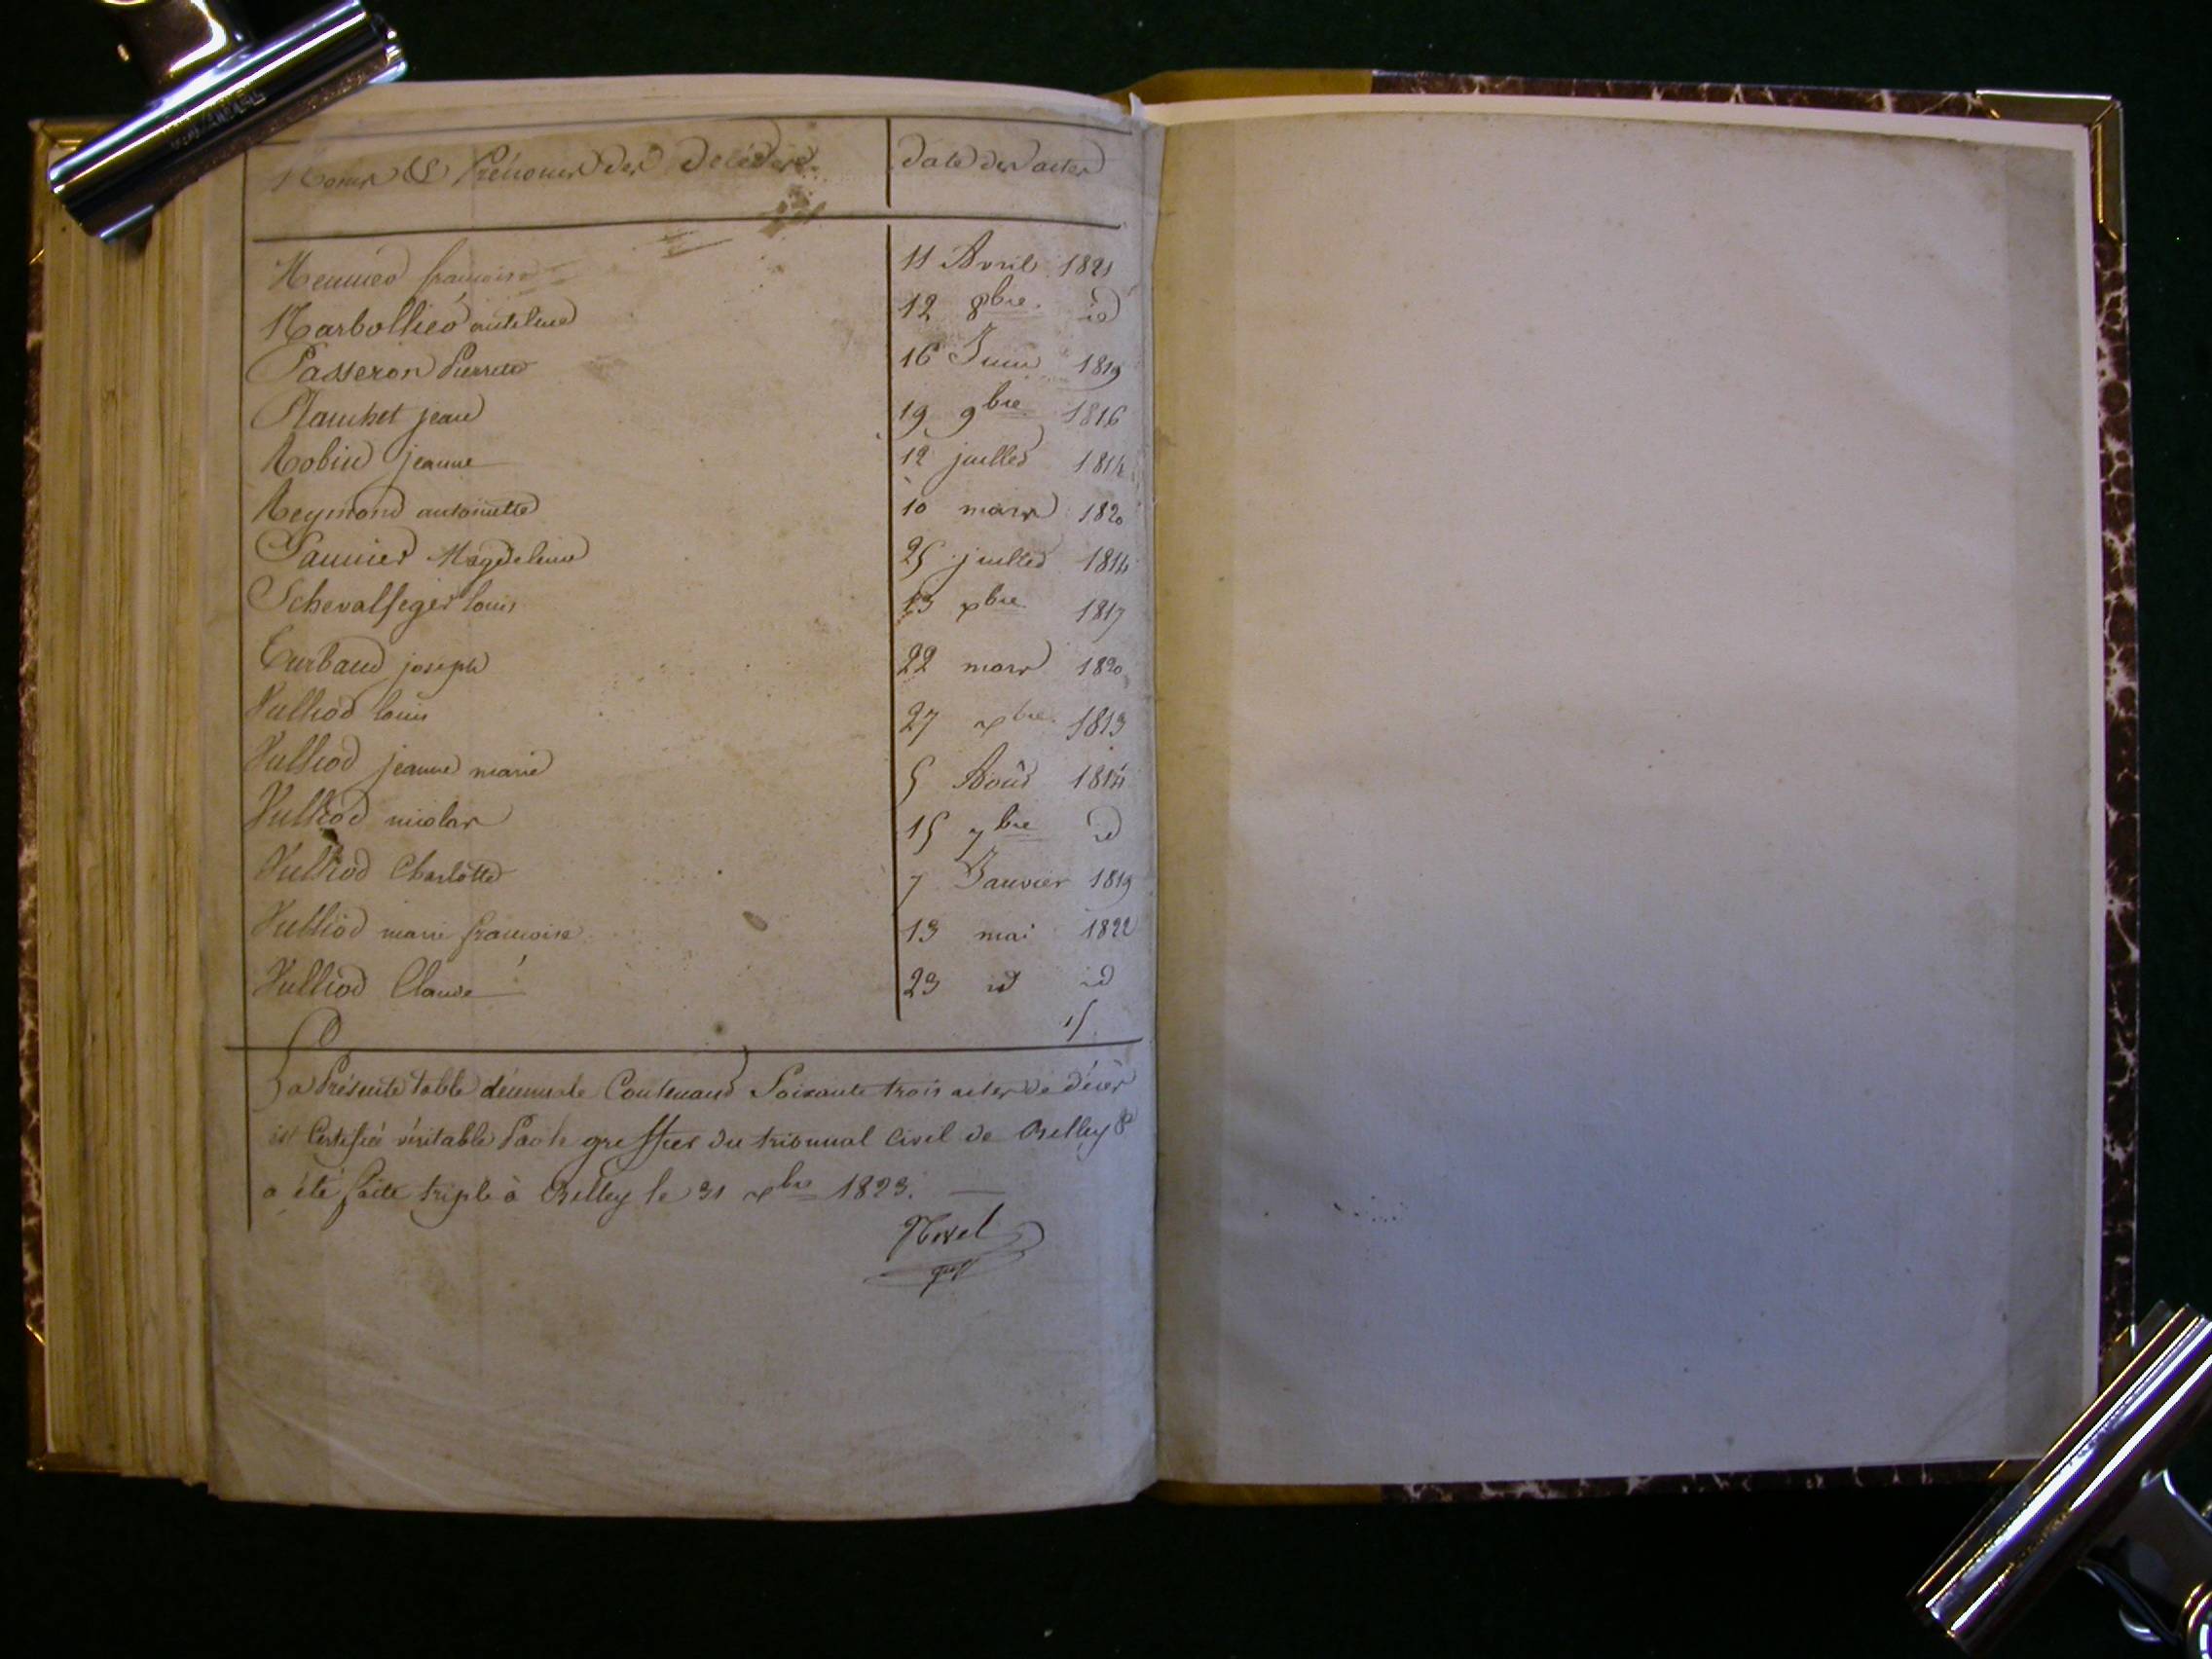 Noms & Prénoms des Décédés. Date des actes
françoise 11 Avril 1821
Narbollied anthelme 12 8bre id
Passeron Pierrette 16 Juin 1819
Planchet jean 19 9bre 1816
Robin jeanne 12 juillet 1814
Reymond antoinette 10 mars 1820
Saunier Magdeleine 25 juillet 1814
louis 13 xbre 1817
Turbaud joseph 22 mars 1820
Vulliod louis 27 xbre 1813
Vulliod jeanne marie 5 Août 1814
Vulliod nicolas 15 7bre id
Vulliod Charlotte 7 Janvier 1819
Vulliod marie françoise 13 mai 1822
Vulliod Claude 23 id id
15
La Présente table décennale Contenant Soixante trois actes de décès
est Certifiée véritable Par le greffier du tribunal Civil de Belley &
a été faite triple à Belley le 31 xbre 1823.